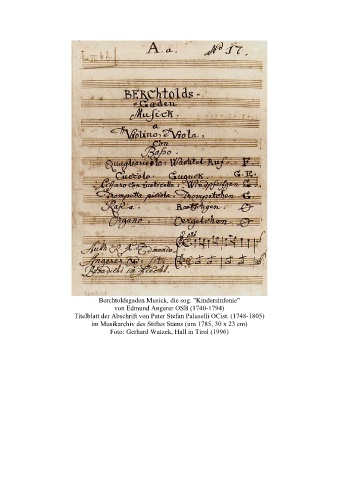 A. a. No 17.
BERCHtoLDS-
Gaden
Musick.
a
Violino, Viola,
Con
Baßo.
Quagliariolo: Wachtel Ruf. F.
Cuccolo. Guguck. G. E.
Trompetta piccola. Trompetchen G
Organo. Oergelchen
Auth. R. P. Edmundo
Angerer
Berchtoldsgaden Musick, die sog. "Kindersinfonie"
von Edmund Angerer OSB (1740-1794)
Titelblatt der Abschrift von Pater Stefan Paluselli OCist (1748-1805)
im Musikarchiv des Stiftes Stams (um 1785, 30 x 23 cm)
Foto: Gerhard Watzek, Hall in Tirol (1996)